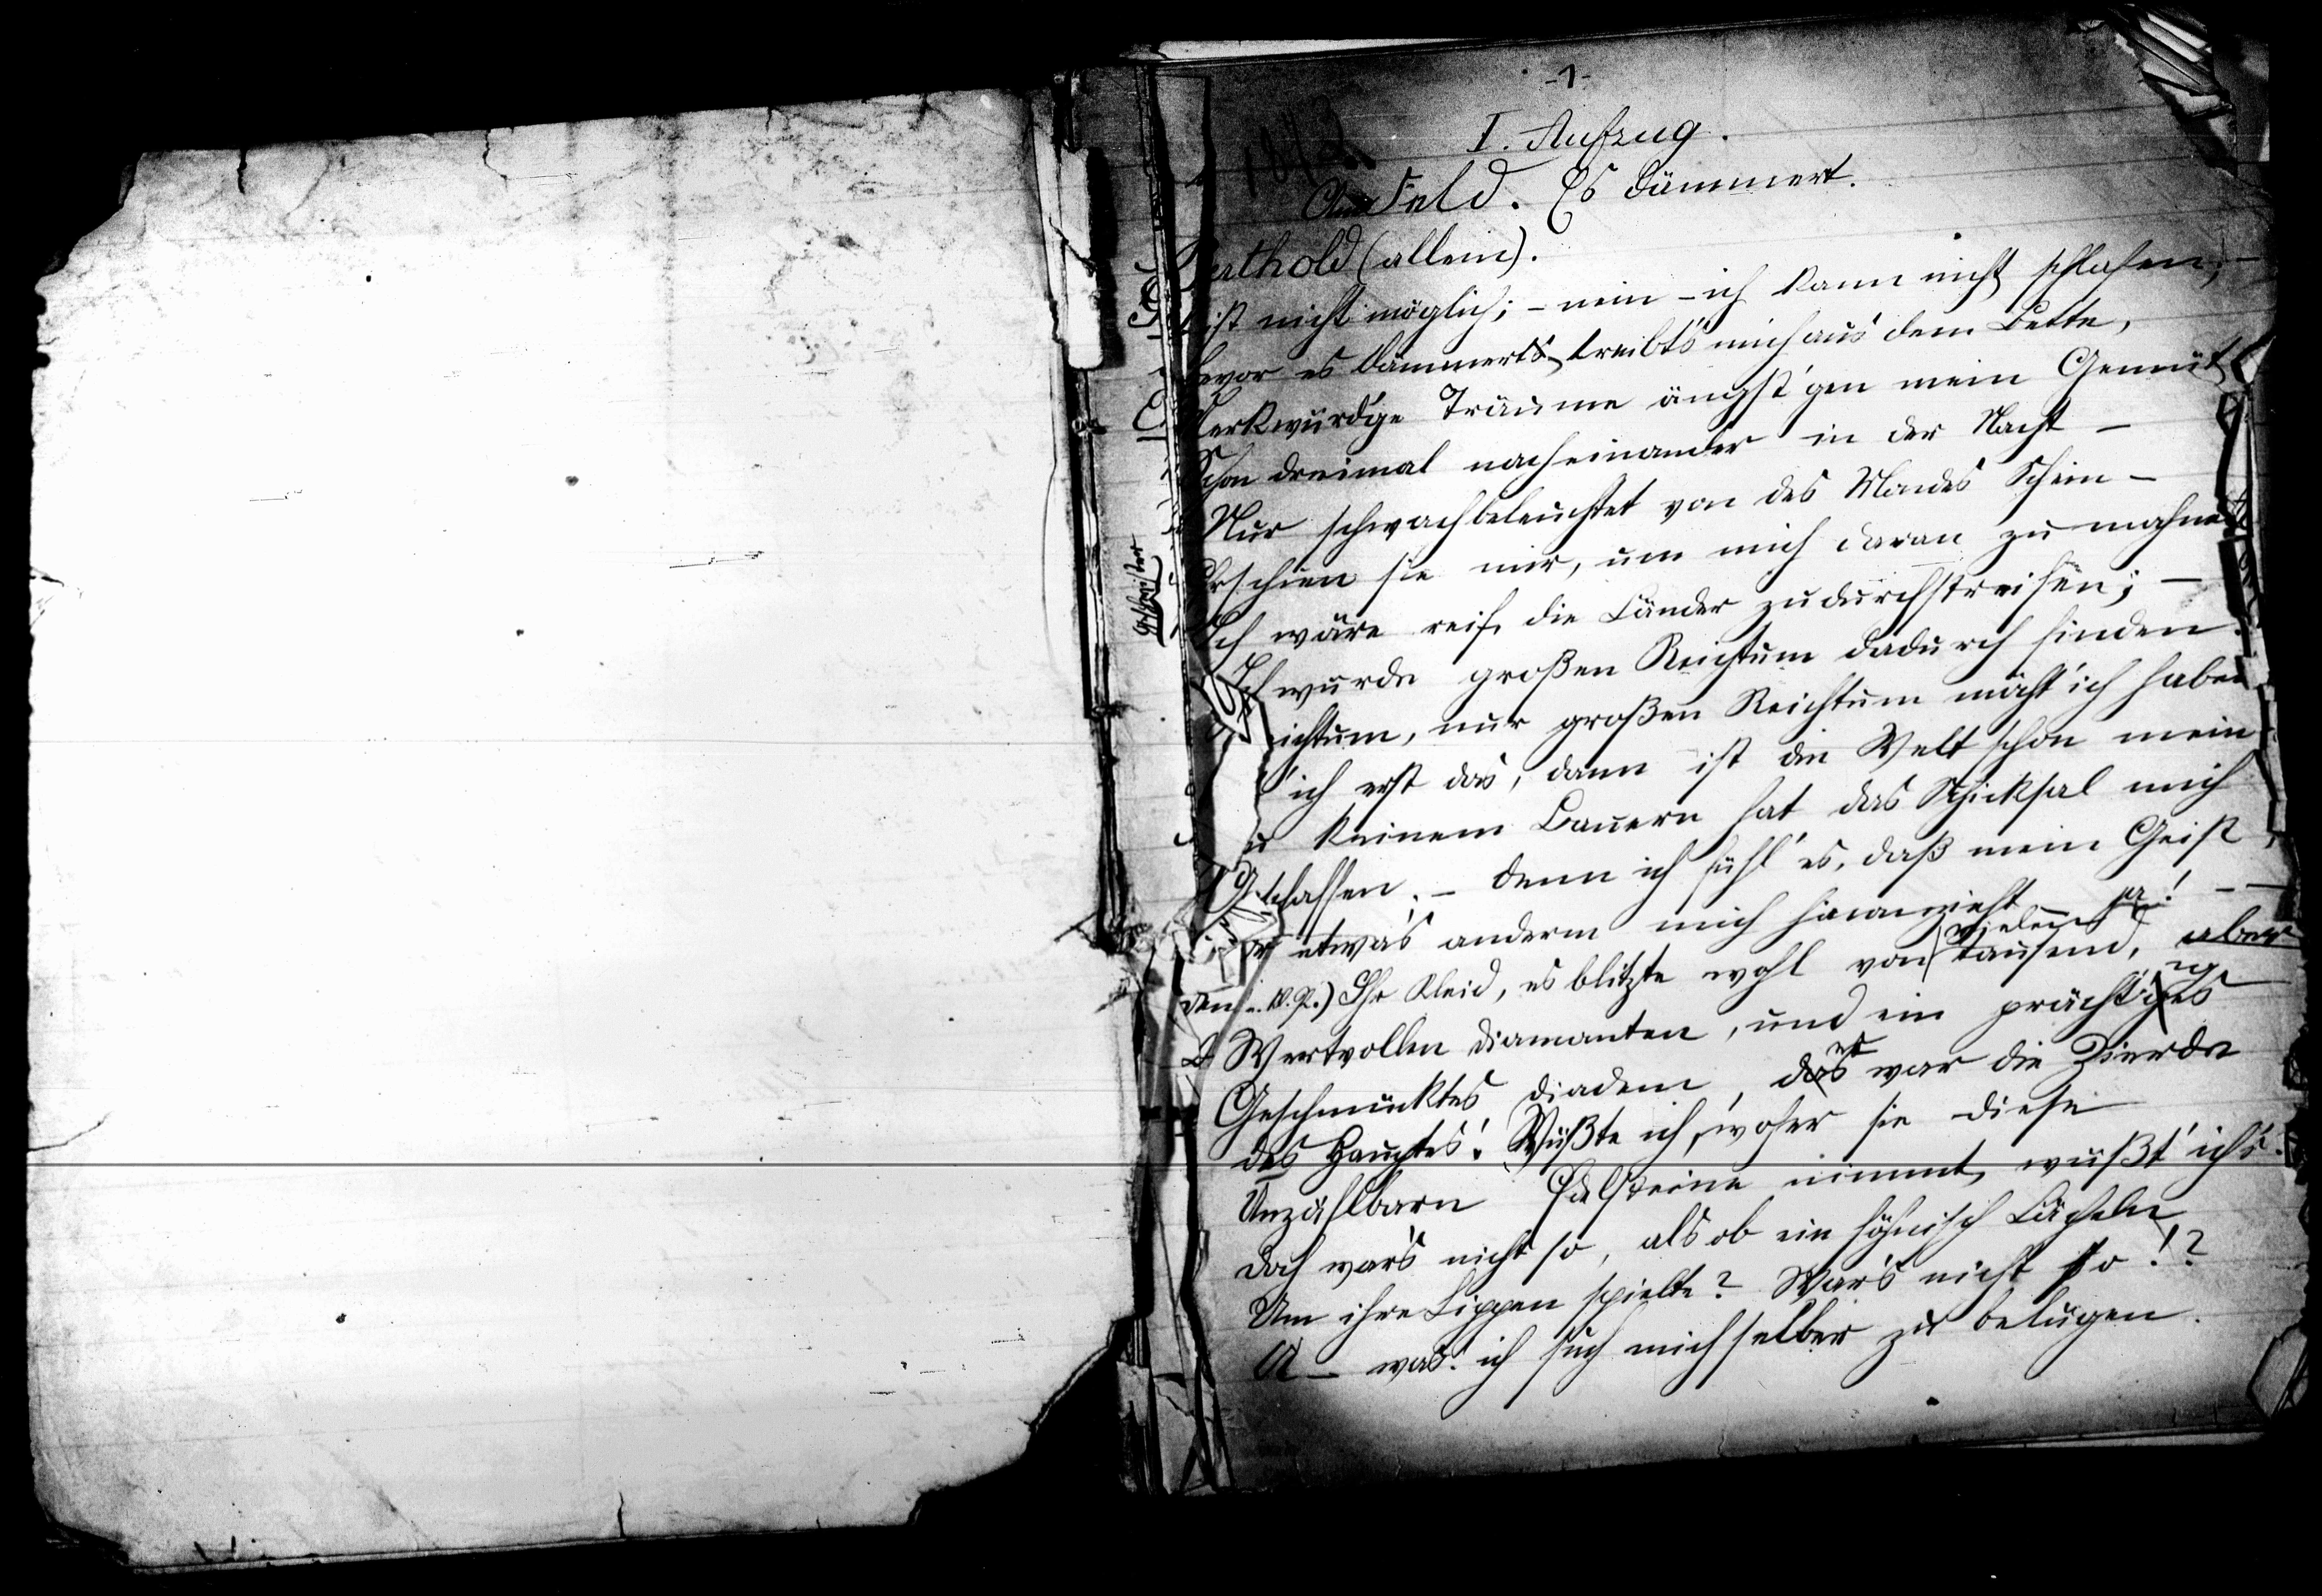 -1-
I. Aufzug.
Am Feld. Es dämmert.
Berthold (allein).
ist nicht möglich; – nein – ich kann nicht schlafen; –
Bevor es dämmert, treibt's mich aus dem Bette,
Merkwürd'ge Träume ängst'gen mein Gemüt
Schon dreimal nacheinander in der Nacht –
Nur schwach beleuchtet von des Mondes Schein –
Erschien sie mir, um mich daran zu mahnen
Ich wäre reif, die Länder zu durchstreifen; –
Ich würde großen Reichtum dadurch finden.
ichtum, nur großen Reichtum möcht' ich haben
' ich erst das, dann ist die Welt schon mein
u keinem Bauern hat das Schicksal mich
Geschaffen. – denn ich fühl' es, daß mein Geist,
etwas anderm mich hinanzieht – ja! – –
Ihr Kleid, es blitzte wohl von vielen tausend, aber
Wertvollen Diamanten, und ein prächtig
Geschmücktes Diadem, das war die Zierde
des Hauptes! Wüßte ich, woher sie diese
Unzählbarn Edelsteine nimmt, wüßt' ich's.
Doch war's nicht so, als ob ein höhnisch Lächeln
Um ihre Lippen spielte? War's nicht so!?
A – was! ich such mich selber zu belügen.